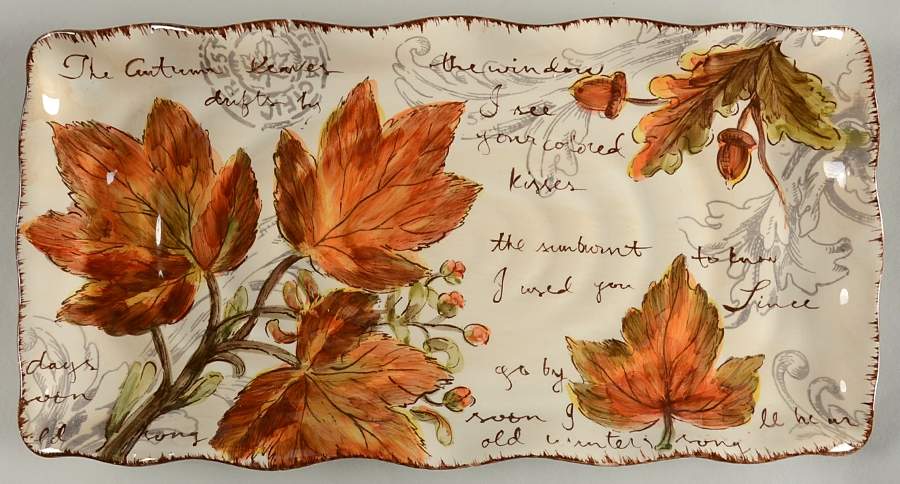 The Autumn Leaves
drifts by
the window
I see
your colored
kisses
the sunburnt
I used you
to know
Since
days
soon
old song
go by
soon I ll hear
old winter's song